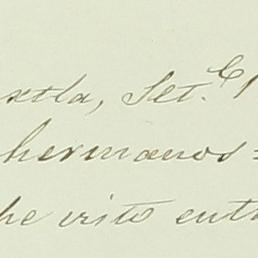 xtla, Set.e 1
hermanos=
he visto entr